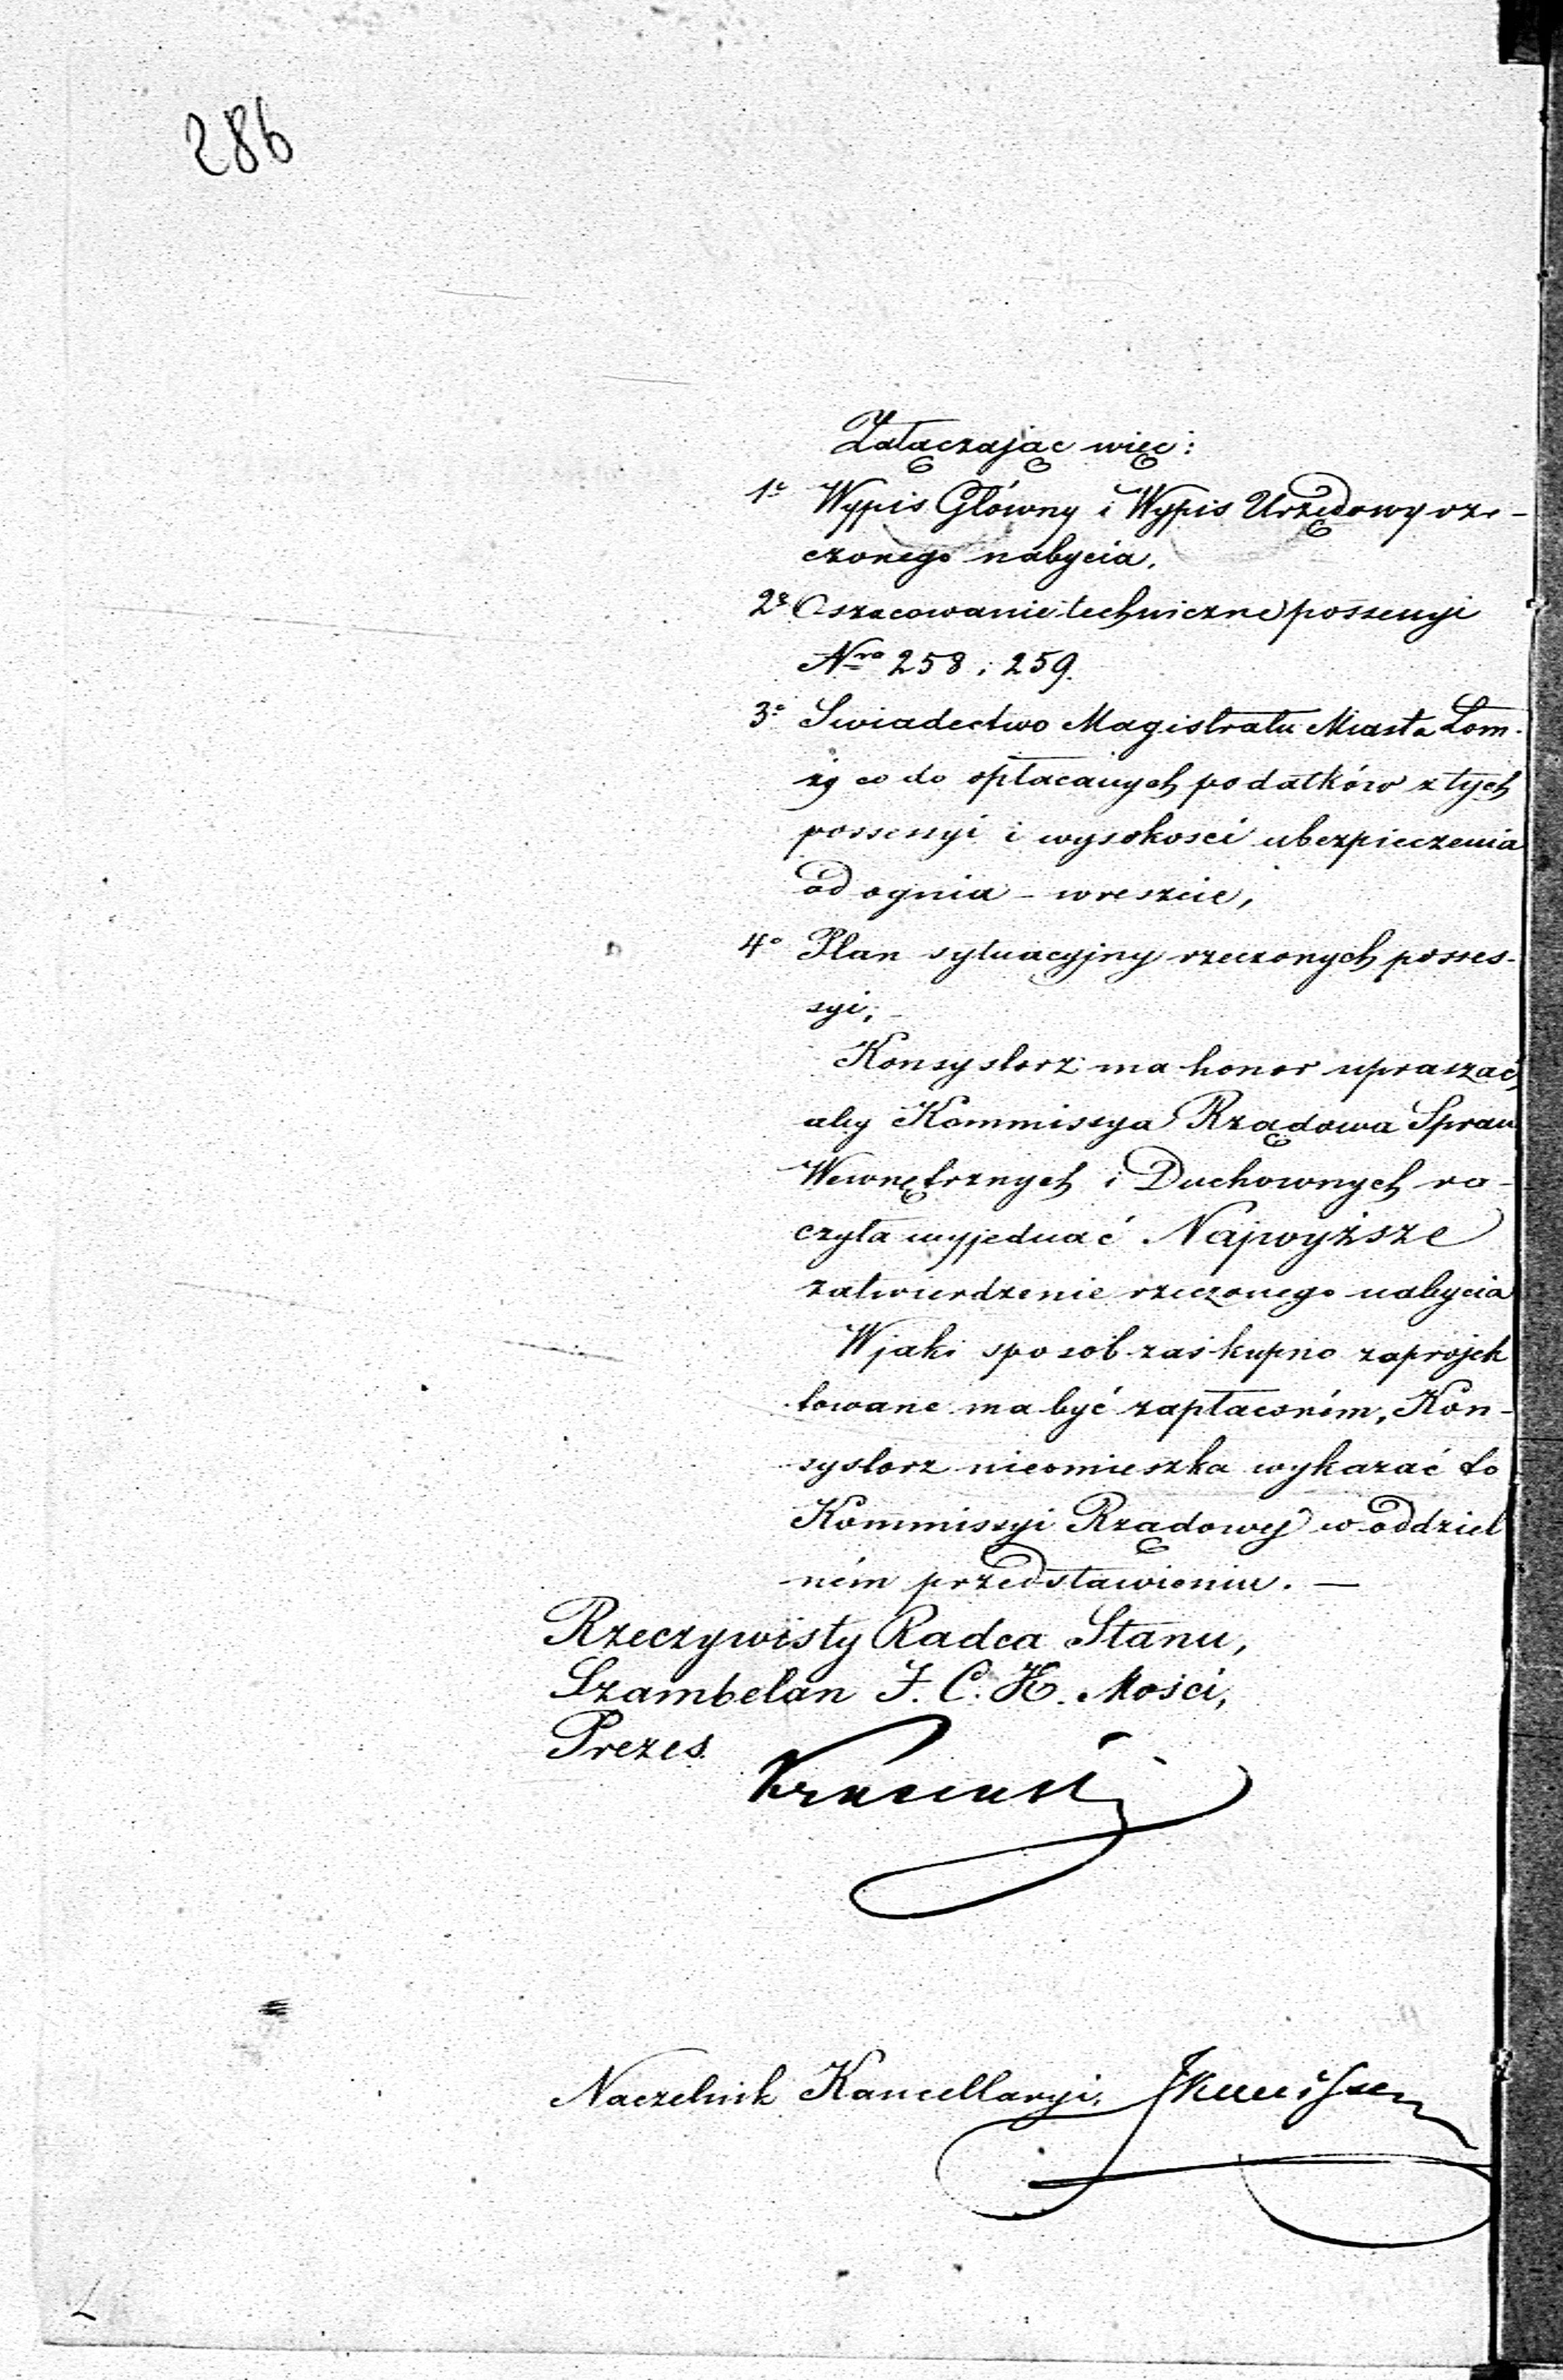 286
Załączając więc:
1º Wypis Główny i Wypis Urzędowy rze-
czonego nabycia.
2º Oszacowanie techniczne possessyi
Nro 258 i 259.
3º Swiadectwo Magistratu Miasta Łom-
ży co do opłacanych podatków z tych
possessyi i wysokosci ubezpieczenia
od ognia – wreszcie,
4º Plan sytuacyjny rzeczonych posses-
syi; –
Konsystorz ma honor upraszać,
aby Kommissya Rządowa Spraw
Wewnętrznych i Duchownych ra-
czyła wyjednać Najwyższe
zatwierdzenie rzeczonego nabycia
W jaki sposób zaś kupno zaprojek
towane ma być zapłaconém, Kon-
systorz nieomieszka wykazać to
Kommissyi Rządowej w oddziel
ném przedstawieniu. —
Rzeczywisty Radca Stanu,
Szambelan J. C. K. Mości,
Prezes.
Naczelnik Kancellaryi,